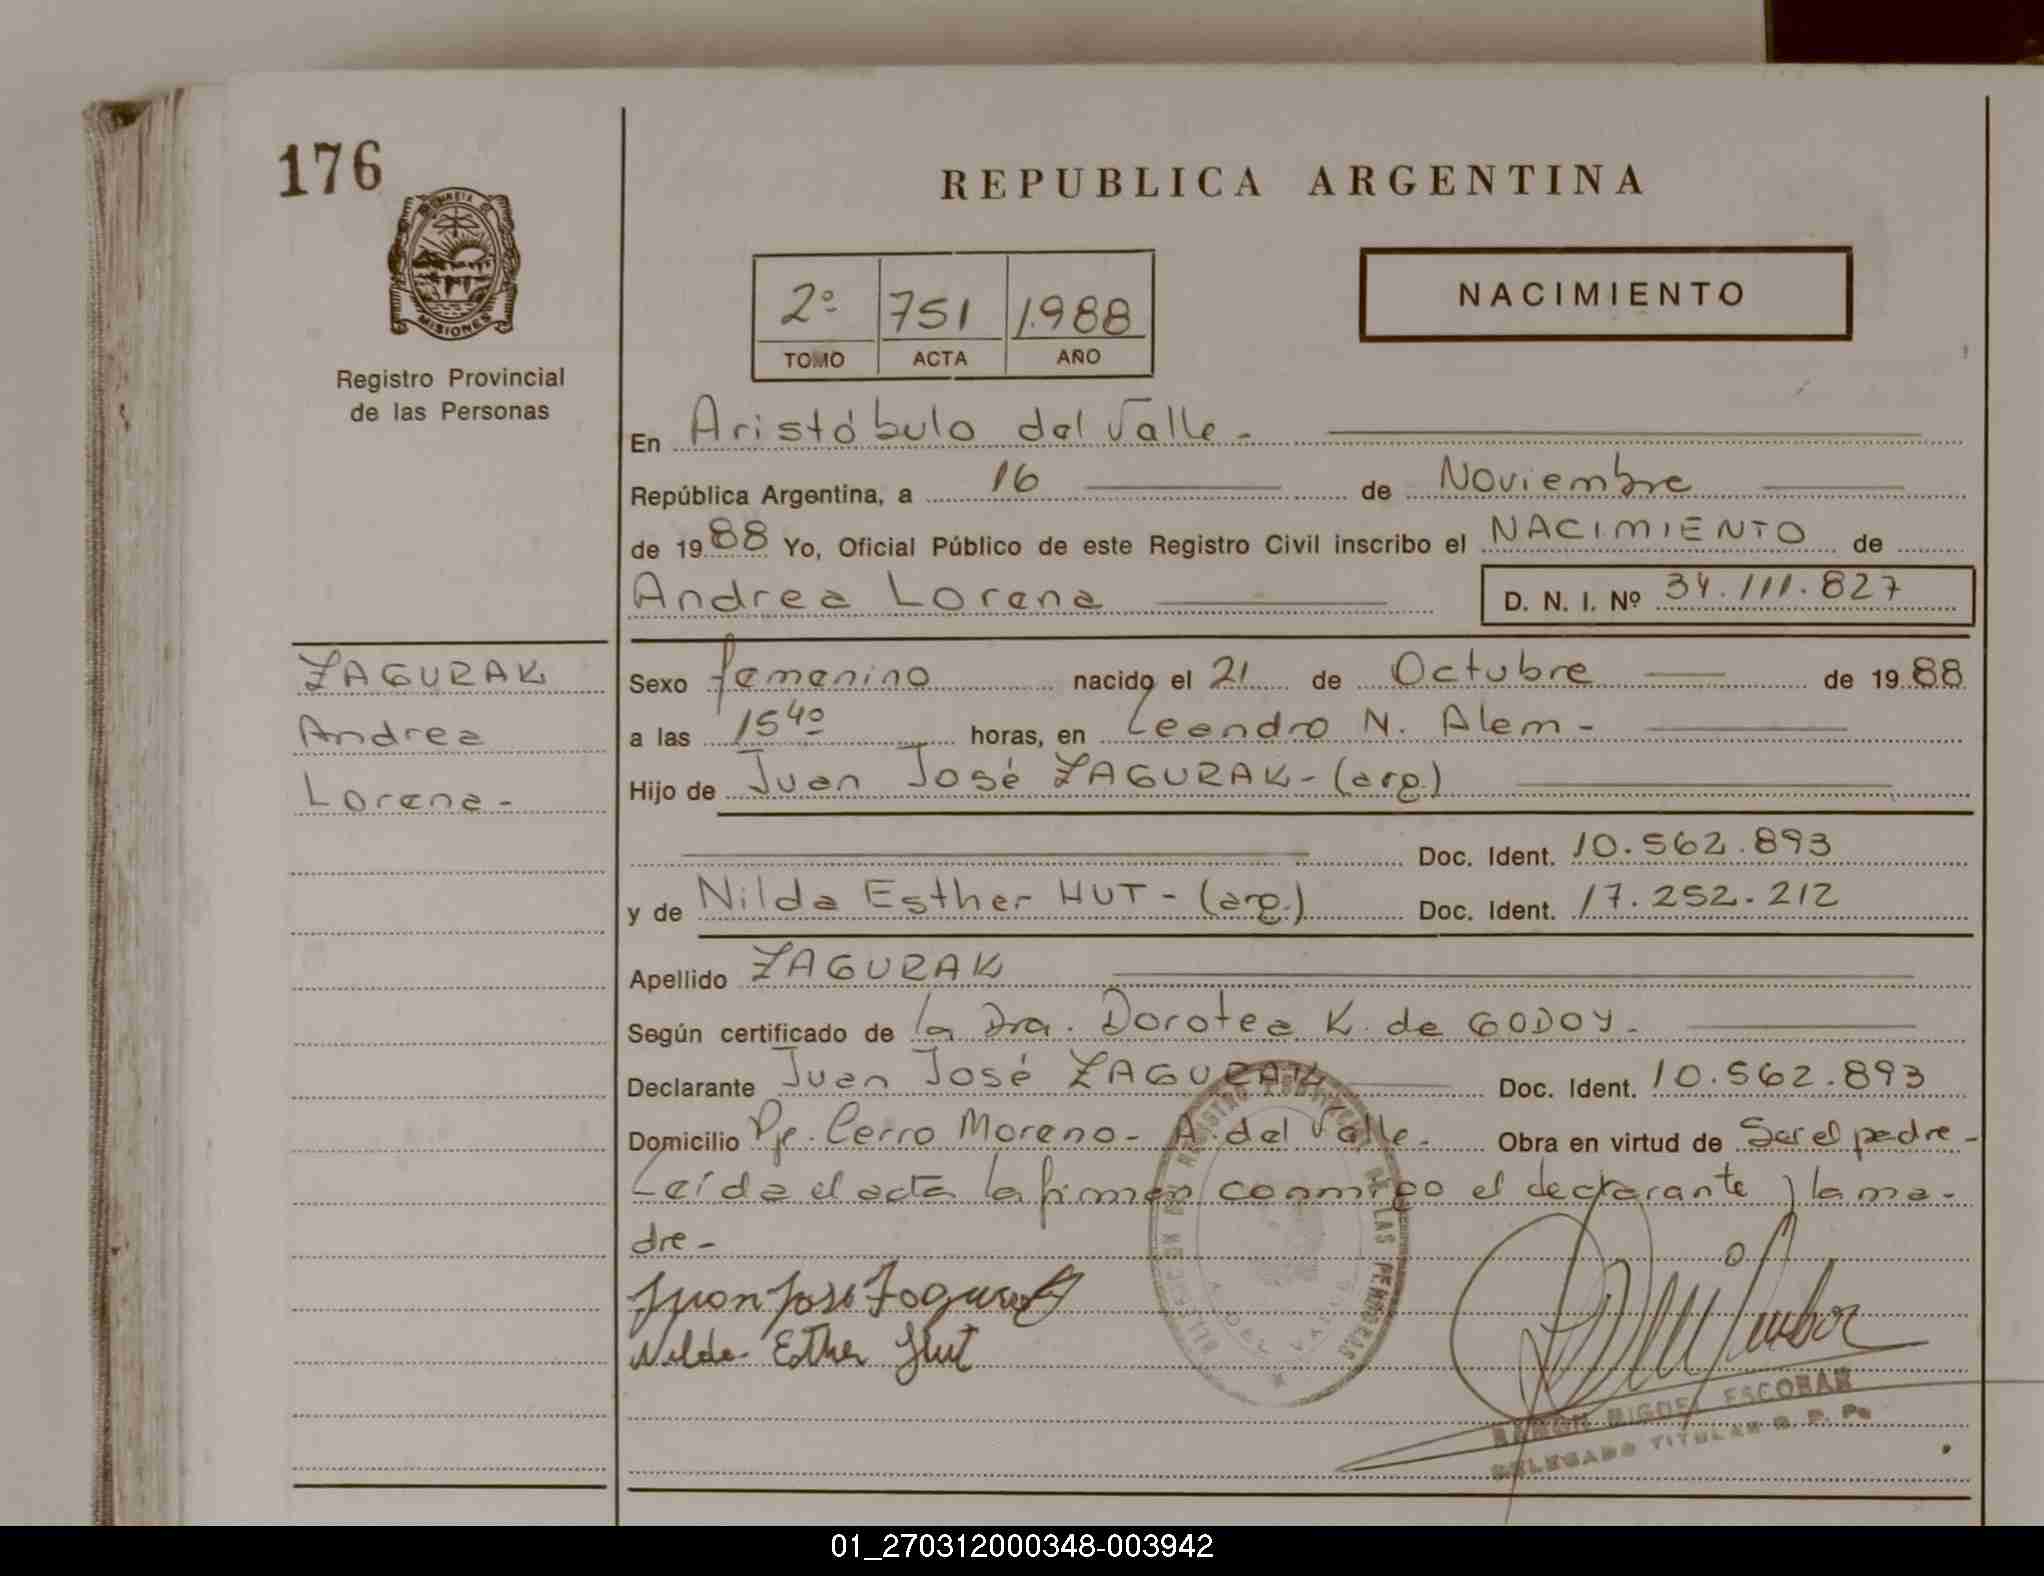 176
REPUBLICA ARGENTINA
MISIONES
Registro Provincial
de las Personas
2º 751 1.988
TOMO ACTA AÑO
NACIMIENTO
En Aristóbulo del Valle -
República Argentina, a 16 de Noviembre
de 1988 Yo, Oficial Público de este Registro Civil inscribo el NACIMIENTO de
Andrea Lorena D. N. I. Nº 34.111.827
ZAGURAK
Andrea
Lorena -
Sexo femenino nacido el 21 de Octubre de 1988
a las 15 40 horas, en Leandro N. Alem -
Hijo de Juan José ZAGURAK - (arg.)
Doc. Ident. 10.562.893
y de Nilda Esther HUT - (arg.) Doc. Ident. 17.252.212
Apellido ZAGURAK
Según certificado de la Dra. Dorotea K. de GODOY -
Declarante Juan José ZAGURAK Doc. Ident. 10.562.893
Domicilio Pje. Cerro Moreno - A. del Valle - Obra en virtud de Ser el padre -
Leída el acta la firman conmigo el declarante y la ma-
dre -
Juan José Zagurak
Nilda Esther Hut
RAMON MIGUEL ESCOBAR
DELEGADO TITULAR R. P. Ps
01_270312000348-003942